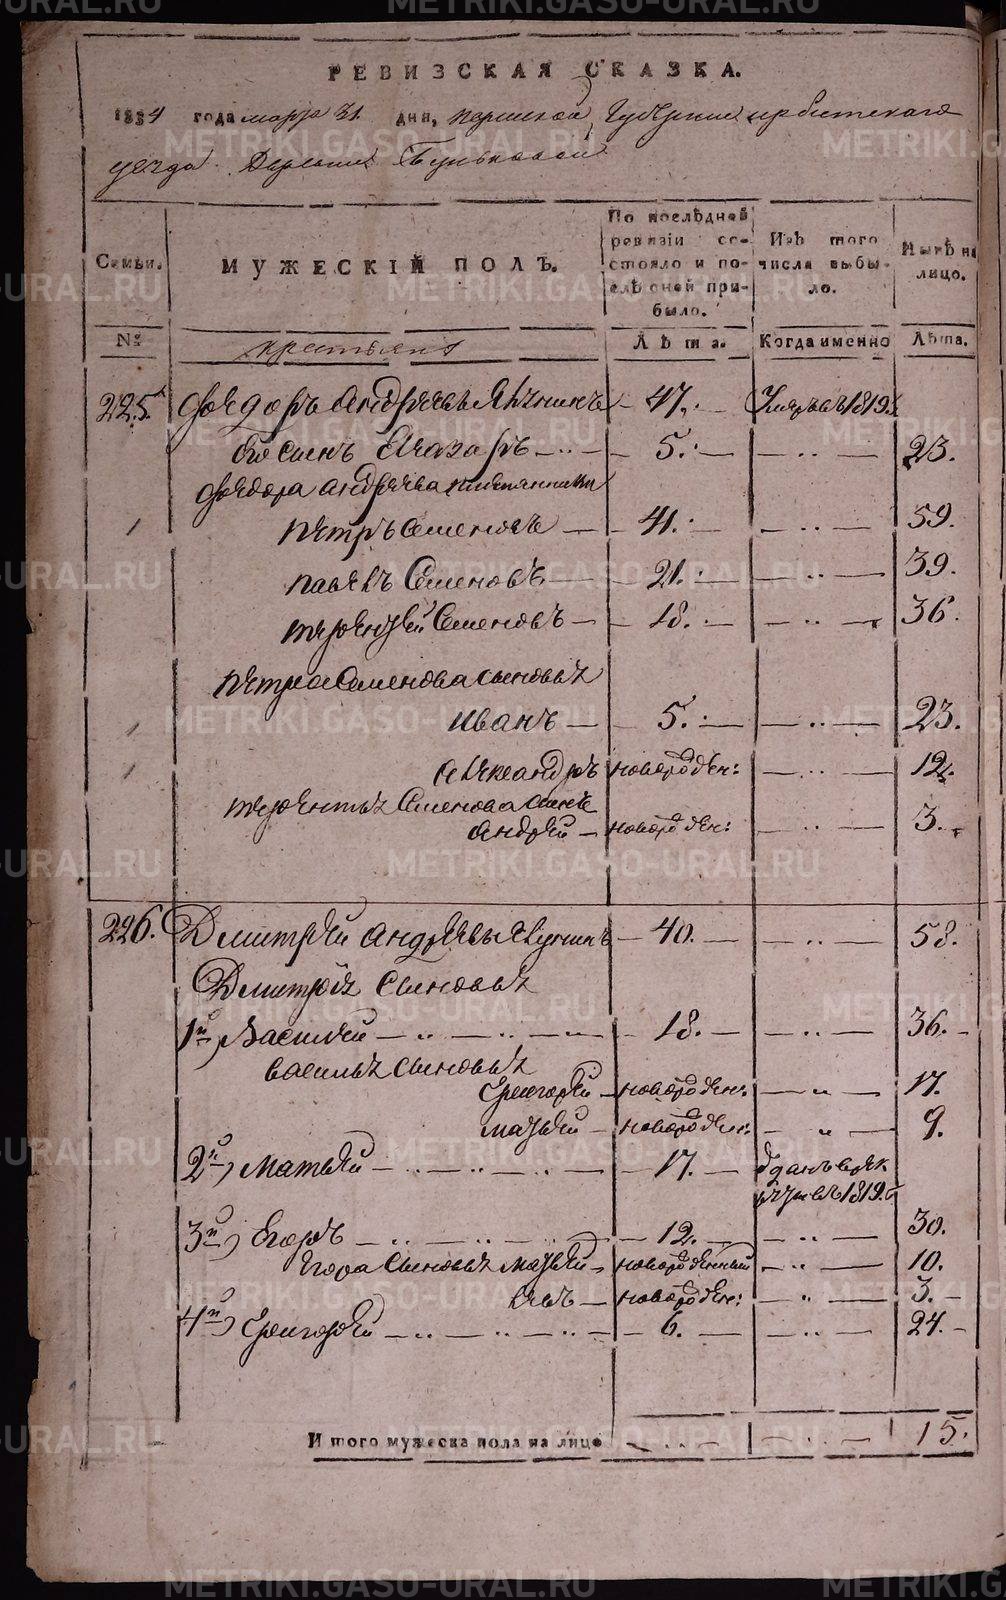 РЕВИЗСКАЯ СКАЗКА.
1834 года марта 31 дня, пермской Губернии ирбитскаго
уезда Деревни
Семьи. МУЖЕСКІЙ ПОЛЪ. По послѣдней ревизіи состояло и послѣ оней прибыло. Изъ того числа выбыло. Нынѣ на лицо.
№ крестьяне Лѣта. Когда именно Лѣта.
225 Фёдоръ Андреевъ 47. Умръ въ 1819.
Его сынъ Назаръ 5. 23.
Фёдора Андреева племянники
Петръ Семеновъ 41. 59.
Павелъ Семеновъ 21. 39.
терентей Семеновъ 18. 36.
Петра Семенова сыновья
Иванъ 5. 23.
Александръ новорожден: 12.
терентья Семенова сынъ
Андрей новорожден: 3.
226. Дмитрей Андреевъ 40. 58.
Дмитрея сыновья
1й) Василей 18. 36.
василья сыновья
Григорей новорожден: 17.
Матвей новорожден: 9.
2й) Матвей 17. Отданъ в рек
руты въ 1819.
3й) Егоръ 12. 30.
Егора сыновья Матвей новорожденный 10.
Левъ новорожден: 3.
4й) Григорей 6. 24.
Итого мужеска пола на лице 15.
METRIKI.GASO-URAL.RU